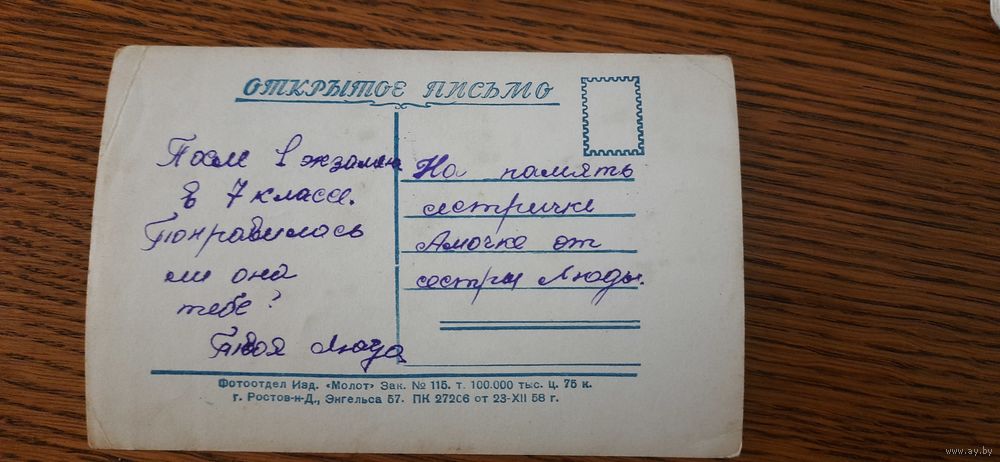 ОТКРЫТОЕ ПИСЬМО
После 1 экзамена
в 7 классе.
Понравилась
ли она
тебе?
Твоя Люда
На память
сестричке
Аллочке от
сестры Люды.
Фотоотдел Изд. «Молот» Зак. № 115. т. 100.000 тыс. ц. 75 к.
г. Ростов-н-Д., Энгельса 57. ПК 27206 от 23-XII 58 г.
www.ay.by